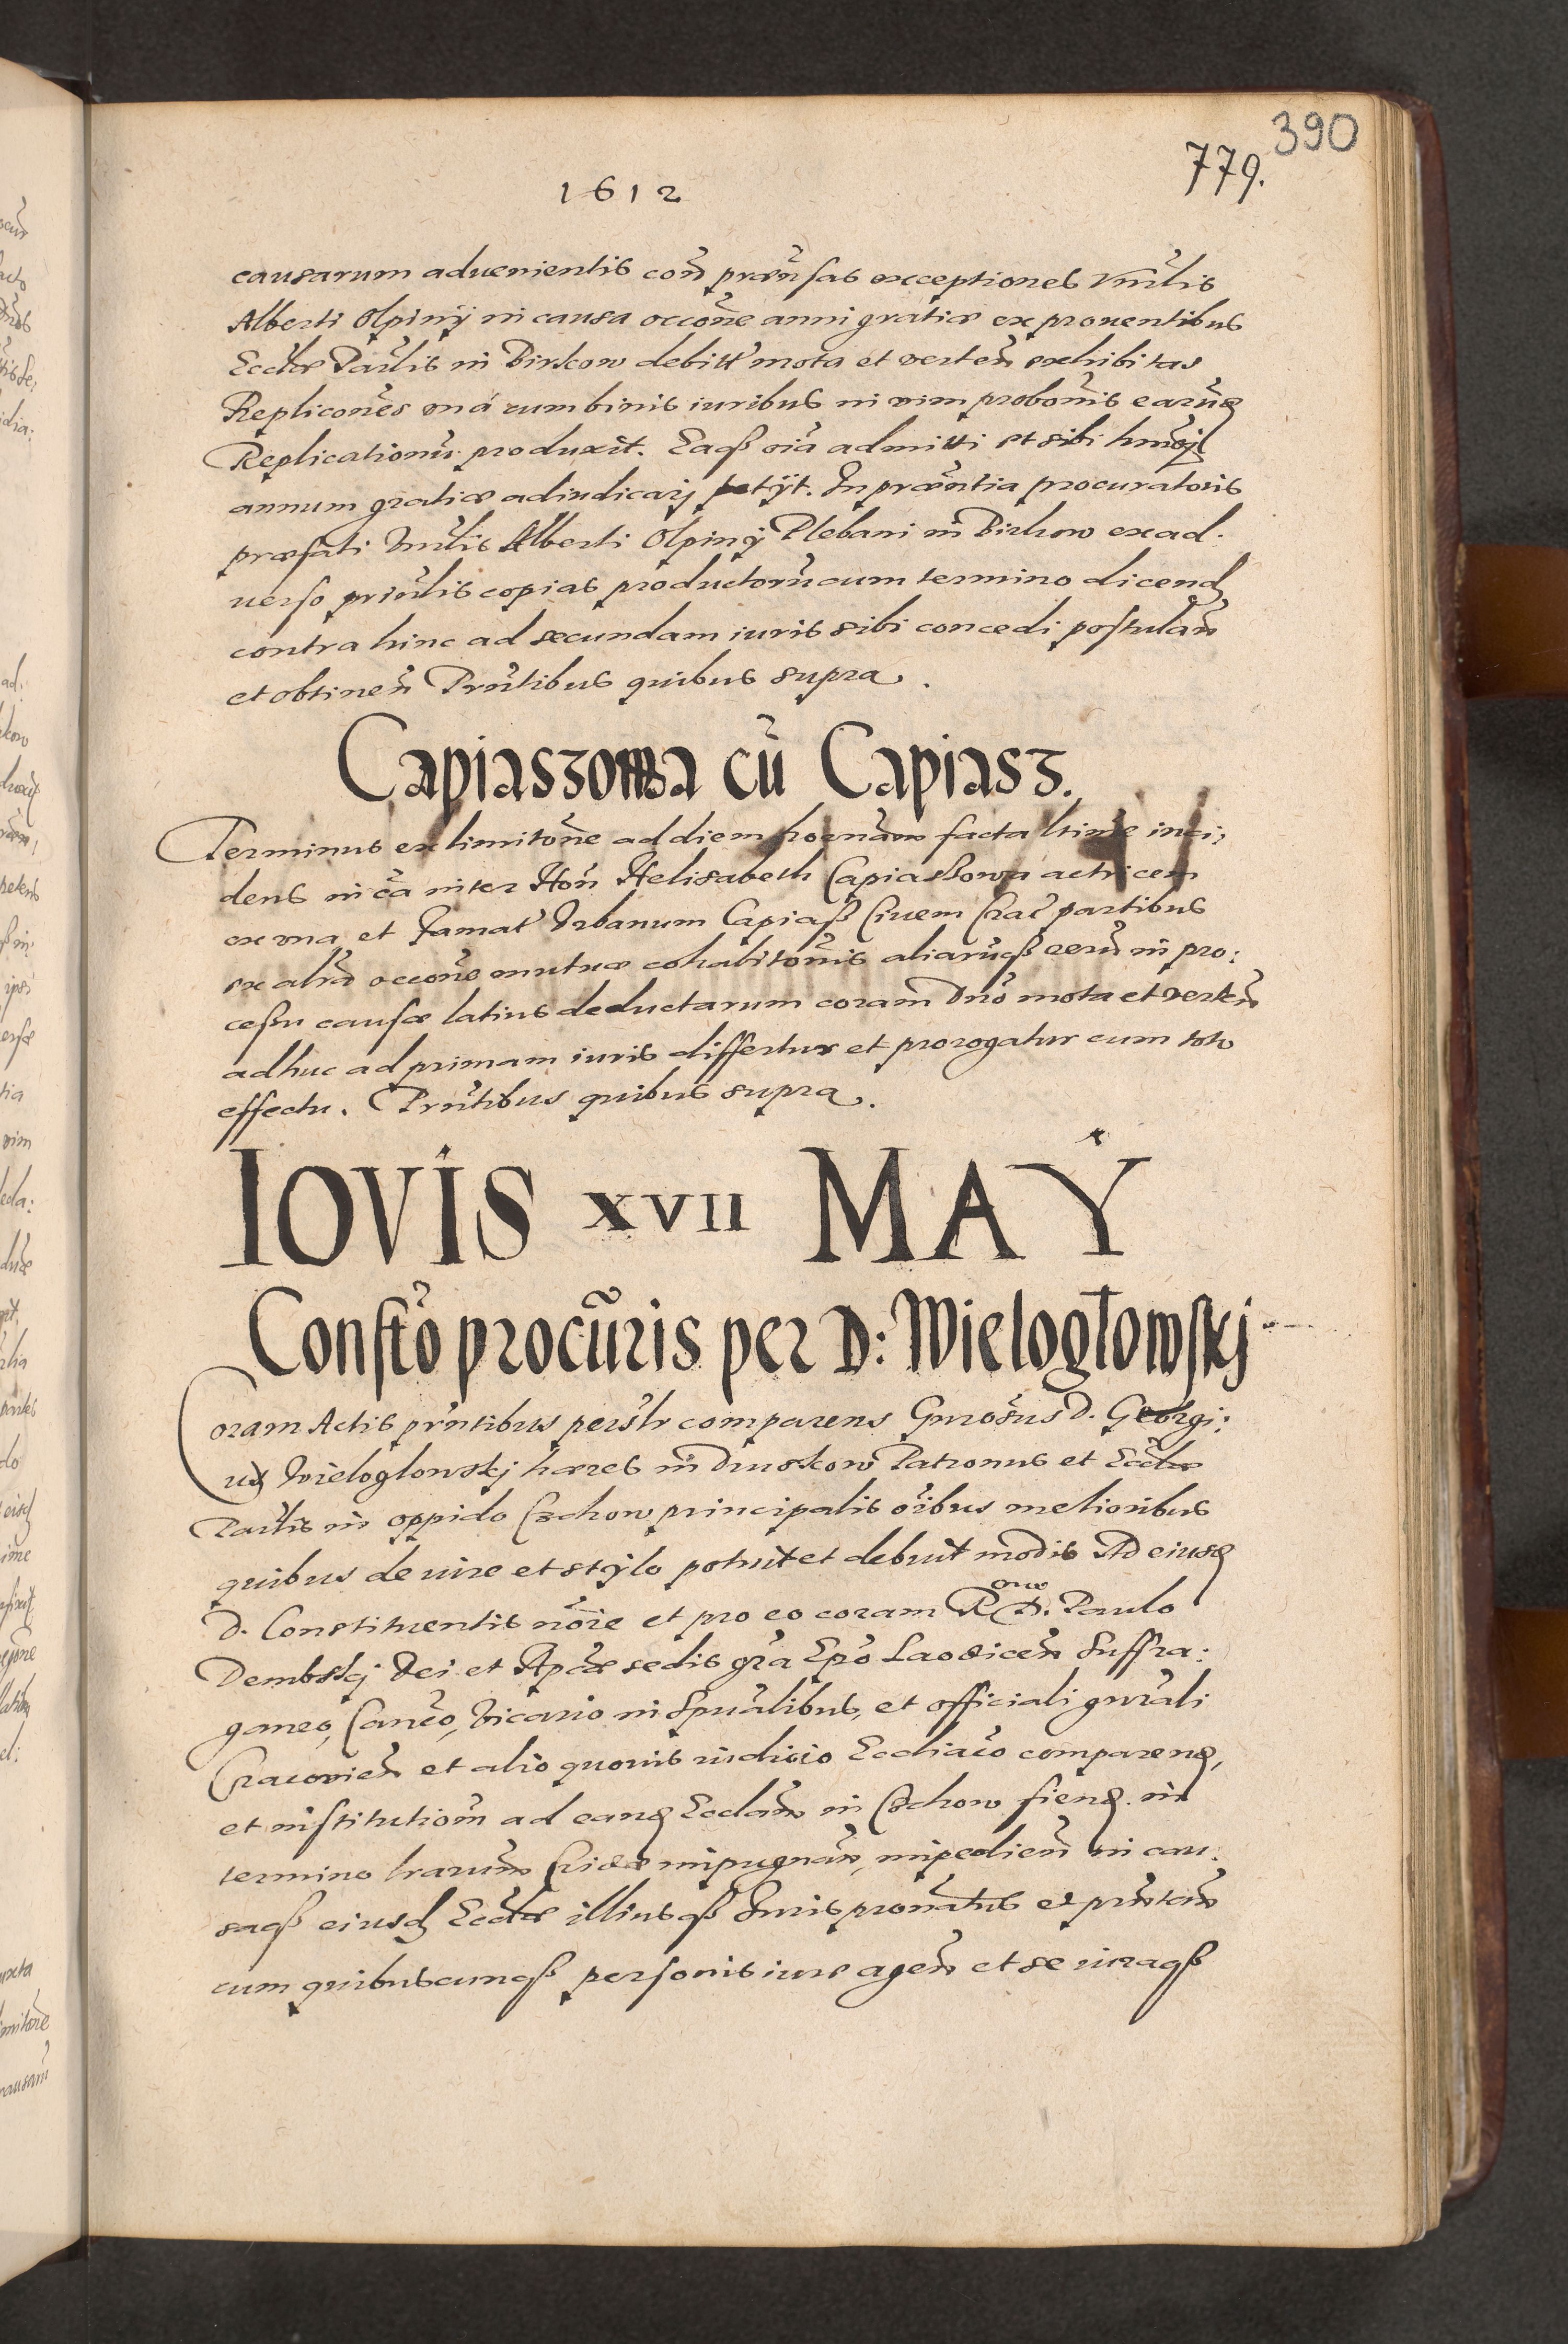 390
779.
1612
causarum aduenientis coñ præñsas exceptiones Vñrlis
Alberti Olpinÿ in causa occõne anni gratiæ ex prouentibus
Ecclæ Parlis in Birkow debitt mota et verteñ exhibitas
Replicoñes vna cum binis iuribus in vim proboñis earũq
Replicationũ produxit. Eaqß oĩa admitti et sibi hmõi
annum gratiæ adiudicarj petÿt. In præñtia procuratoris
præfati Vñrlis Alberti Olpinÿ Plebani in Birkow ex ad.
uerso priũlis copias productorũ cum termino dicend
contra hinc ad secundam iuris sibi concedi postulañ
et obtineñ Prñtibus quibus supra.
Capiaszowa cũ Capiasz.
Terminus ex limitoñe ad diem hoernam facta ltime inci;
dens in cã inter Hoñ Helisabeth Capiaszowa actricem
ex vna et Famat Vrbanum Capiaß Ciuem Crac partibus
ex alia occõne mutuæ cohabitoñis aliarũqß rerũ in pro:
cessu causæ latius deductarum coram Dño mota et verteñ
adhuc ad primam iuris differtur et prorogatur cum toto
effectu. Prñtibus quibus supra.
IOVIS XVII MAŸ
Constõ procũris per D: Wielogłowskj
Coram Actis prñtibus persłr comparens Gnrosus D. Georgi:
us Wieloglowskj hæres in Druskow Patronus et Ecclæ
Parlis in oppido Czchow principalis oĩbus melioribus
quibus de iure et stÿlo potuit et debuit modis Ad eiusd
D. Constituentis nõie et pro eo coram R D. Paulo
Dembskj Dei et Aplicæ sedis gra Epõ Laodiceñ Suffra:
ganeo, Canco, Vicario in Spũalibus, et officiali gnrali
Cracovieñ et alio quovis iudicio Eccliaco comparend,
et institutioñ ad eand Ecclam in Czchow fiend. in
termino lrarum Cridæ impugnañ, impedieñ in cau.
saqß eiusd Ecclæ illiusqß Iurispronatus et prñtañ
cum quibuscunqß personis iure ageñ et se iuraqß